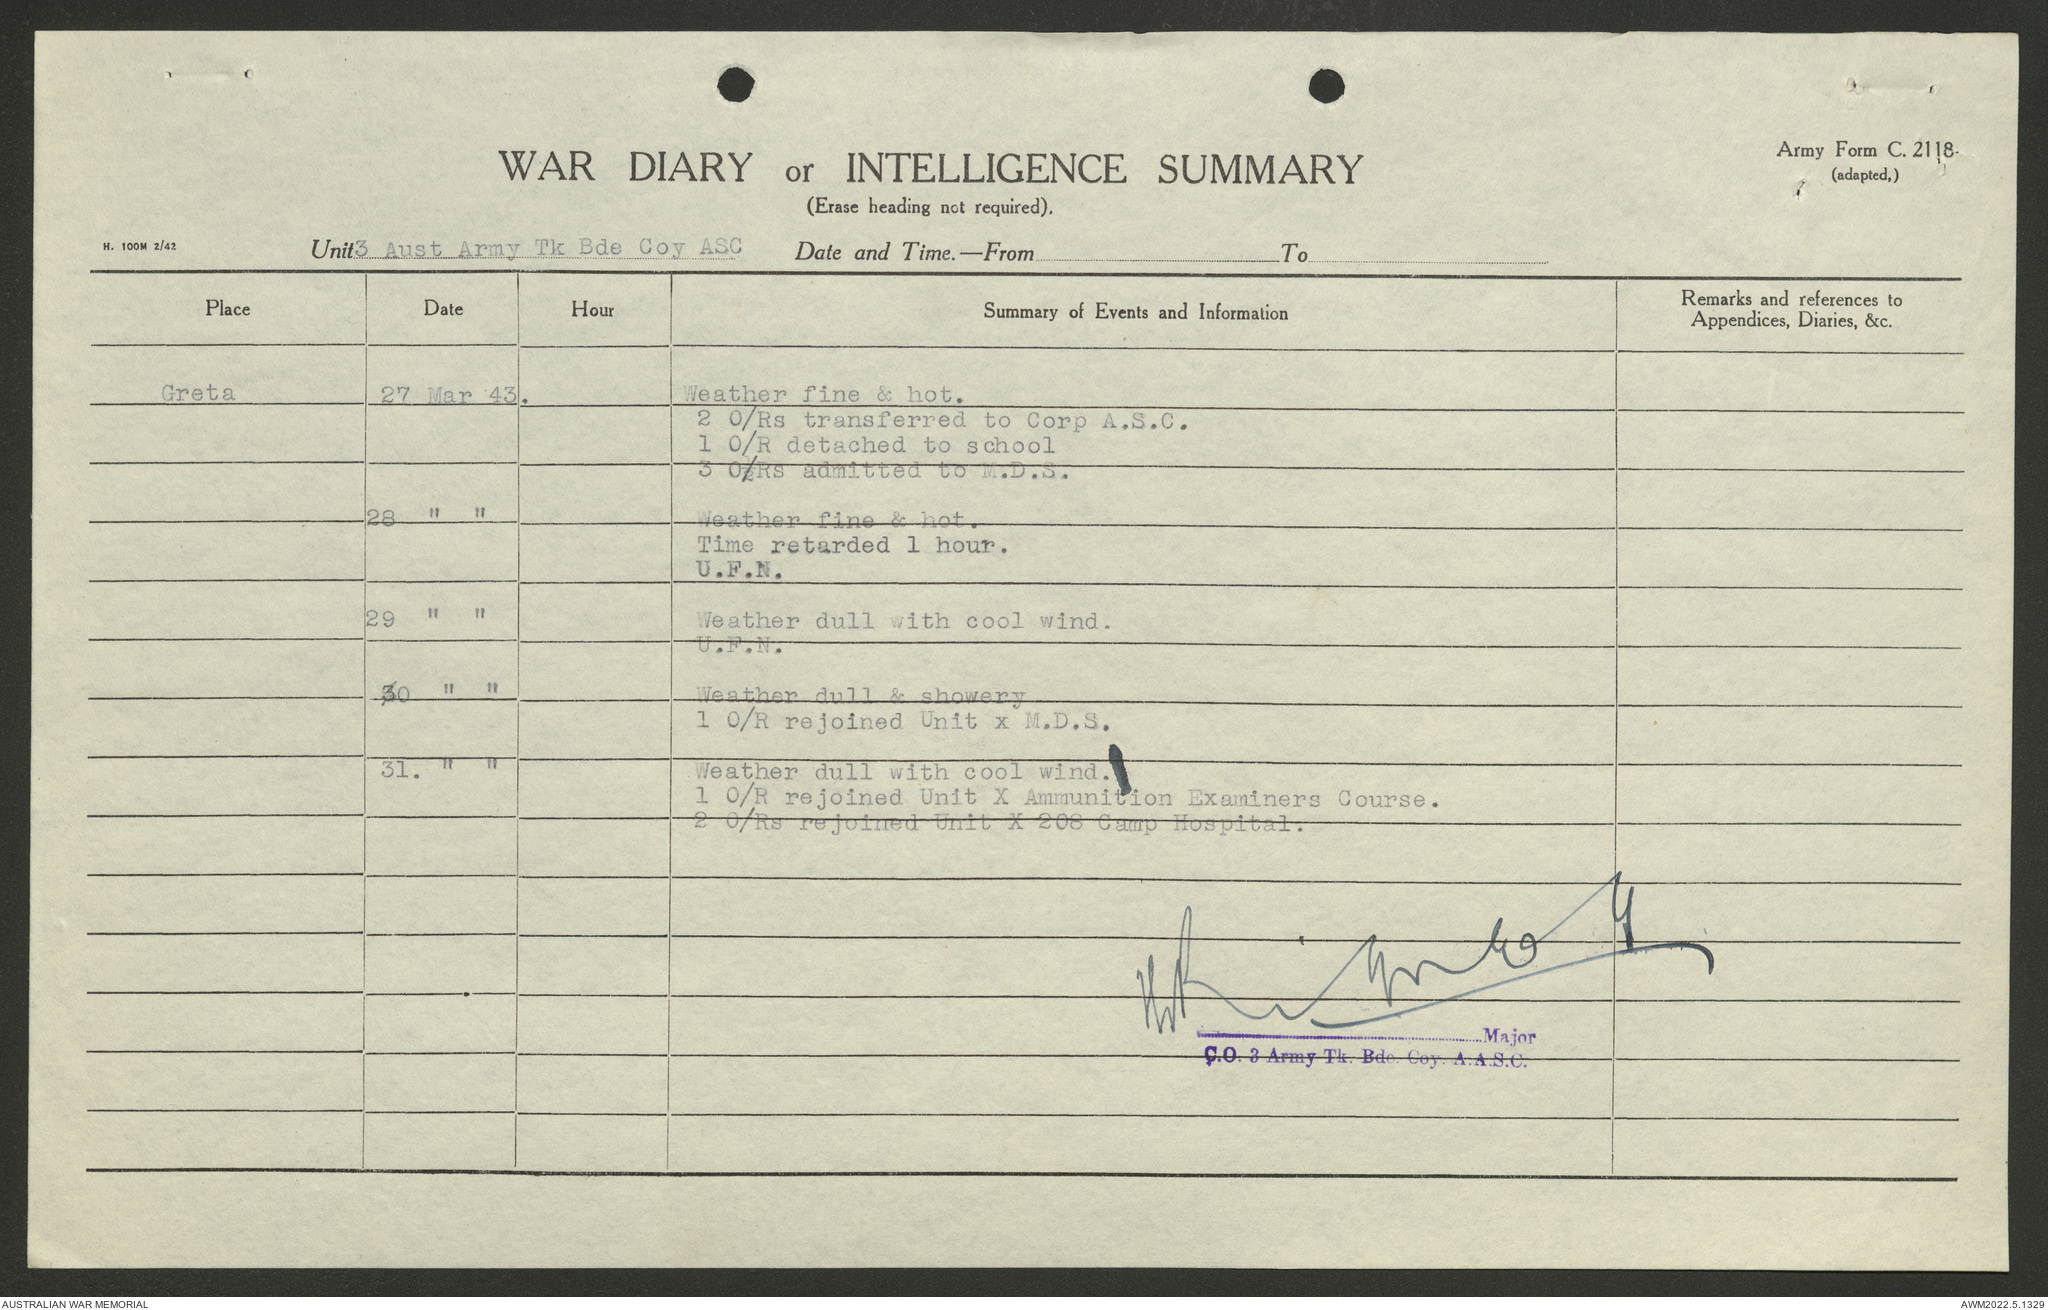 WAR DIARY or INTELLIGENCE SUMMARY
(Erase heading not required).
Army Form C. 2118.
(adapted,)
H. 100M 2/42
Unit 3 Aust Army Tk Bde Coy ASC Date and Time.—From To
Place Date Hour Summary of Events and Information Remarks and references to Appendices, Diaries, &c.
Greta 27 Mar 43. Weather fine & hot.
2 O/Rs transferred to Corp A.S.C.
1 O/R detached to school
3 O/Rs admitted to M.D.S.
28 " " Weather fine & hot.
Time retarded 1 hour.
U.F.N.
29 " " Weather dull with cool wind.
U.F.N.
30 " " Weather dull & showery
1 O/R rejoined Unit x M.D.S.
31. " " Weather dull with cool wind.
1 O/R rejoined Unit X Ammunition Examiners Course.
2 O/Rs rejoined Unit X 208 Camp Hospital.
Major
C.O. 3 Army Tk. Bde. Coy. A.A.S.C.
AUSTRALIAN WAR MEMORIAL
AWM2022.5.1329